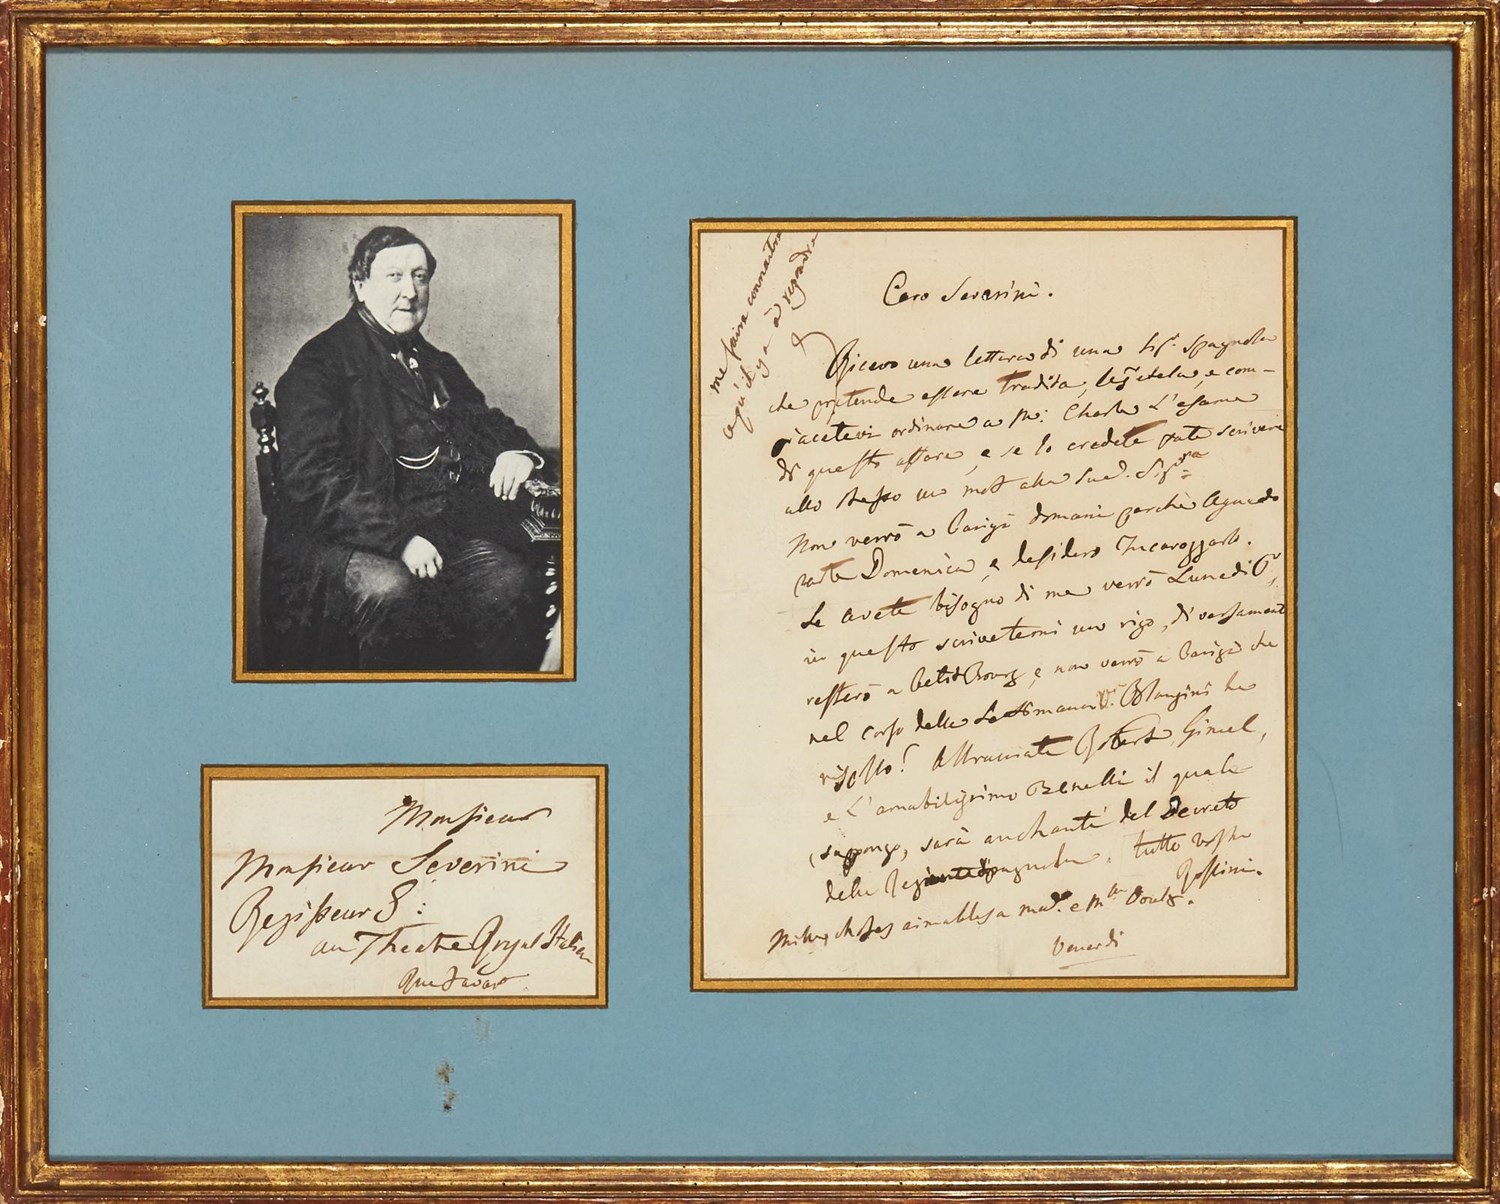 me faire connaitre
Caro Severini.
Ricevo una lettera di una Sig.ª Spagnola
che pretende essere tradita, leggetela, e com-
piacetevi ordinare a M.r Charle L'esame
di questo affare, e se lo credete fate scrivere
allo stesso un mot alla Sud. Sig.ra
Non verrò a Parigi domani perchè Aguado
parte Domenica, e desidero Incarozzarlo.
Se avete bisogno di me verrò Lunedi
in questo scrivetemi un rigo, diversamente
resterò a Petit Bourg, e non verrò a Parigi che
nel corso della Settimana. Blangini ha
risposto? Abbracciate Robert, Gimel,
e L'amabilissimo Benelli il quale
(suppongo, sarà anchanté del Decreto
della Spagnola. tutto vostro
Rossini.
Mille choses aimables a Mad. e M.lle
Venerdi
Monsieur
Monsieur Severini
Regisseur G:
au Theatre Royal Italien
Rue Favart